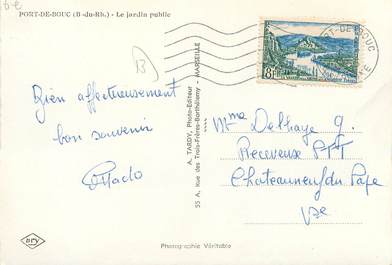 PORT-DE-BOUC (B-du-Rh.) - Le jardin public
13
Bien affectueusement
bon souvenir
A. TARDY, Photo-Editeur
55 A, Rue des Trois-Frères-Barthélemy - MARSEILLE
8F
PORT-DE-BOUC
Mme Delhaye G.
Receveuse PTT
Chateauneuf du Pape
Vse
Photographie Véritable